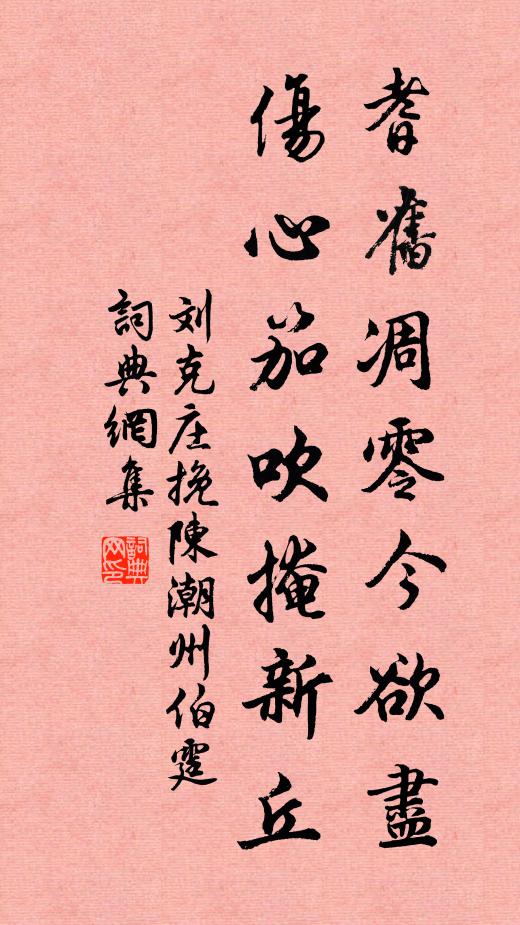 耆舊凋零今欲盡
傷心笳吹掩新丘
刘克庄挽陳潮州伯霆
詞典網集
詞典网印